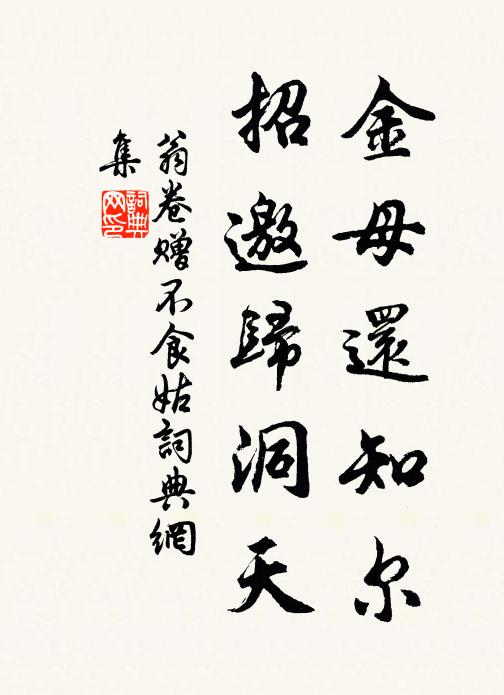 金母還知尔
招邀歸洞天
翁卷贈不食姑詞典網
集
詞典网印